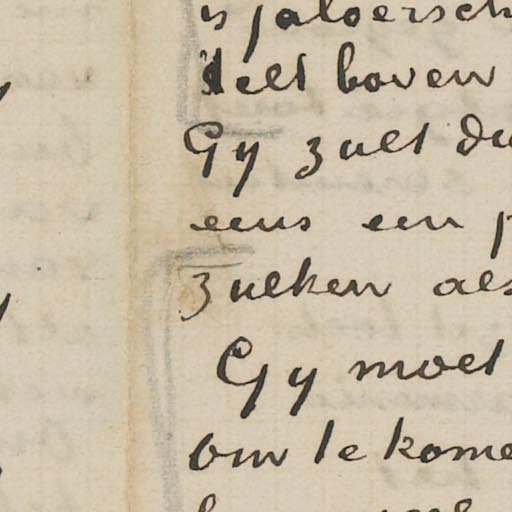 is jaloersch
stelt boven
Gy zult du
eens een p
zulken als
Gy moet
om te kome